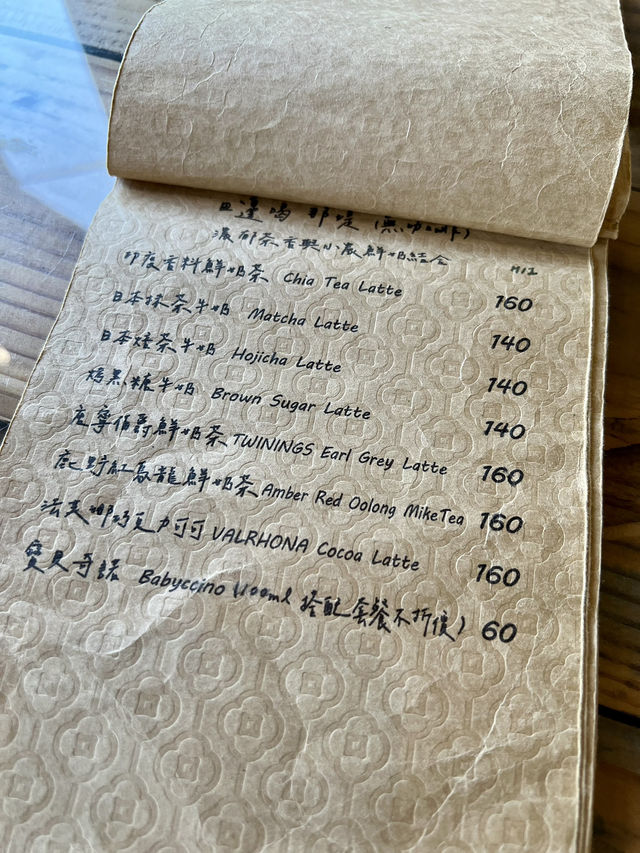 喝 那堤 (無咖啡)
濃郁茶香與小農鮮奶結合 H/I
印度香料鮮奶茶 Chia Tea Latte 160
日本抹茶牛奶 Matcha Latte 140
日本焙茶牛奶 Hojicha Latte 140
焙黑糖牛奶 Brown Sugar Latte 140
唐寧伯爵鮮奶茶 TWININGS Earl Grey Latte 160
鹿野紅烏龍鮮奶茶 Amber Red Oolong MikeTea 160
法芙娜巧克力可可 VALRHONA Cocoa Latte 160
寶貝奇諾 Babyccino (100ml 搭配套餐不折價) 60